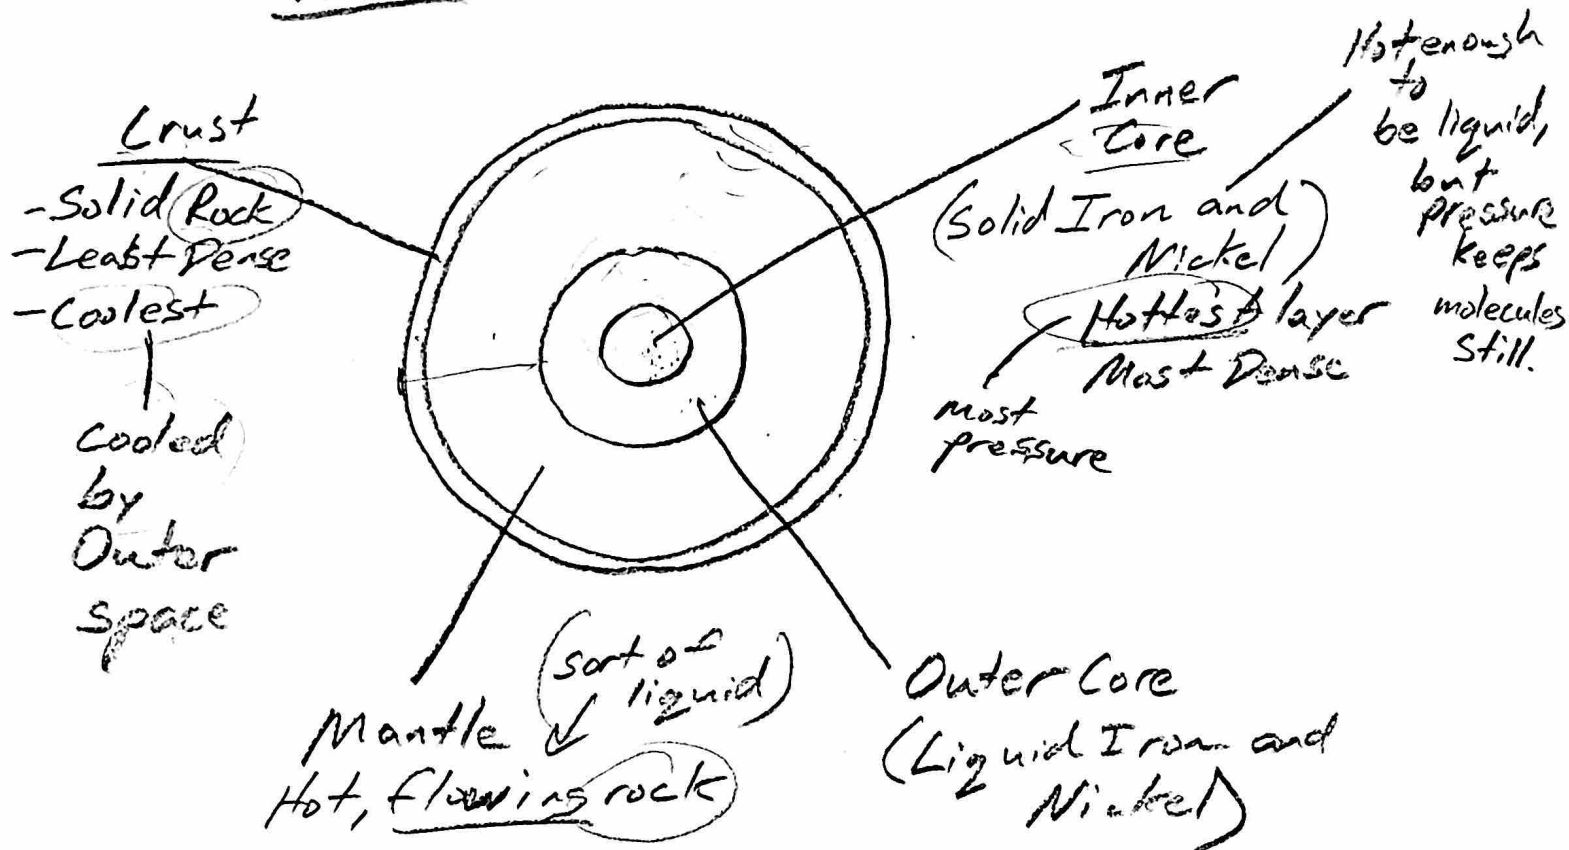 Crust
-Solid Rock
-Least Dense
-Coolest
cooled
by
Outer
space
Inner
Core
(Solid Iron and
Nickel)
Hottest layer
Most Dense
most
pressure
Hot enough
to
be liquid,
but
pressure
keeps
molecules
still.
(sort of
liquid)
Mantle
Hot, flowing rock
Outer Core
(Liquid Iron and
Nickel)